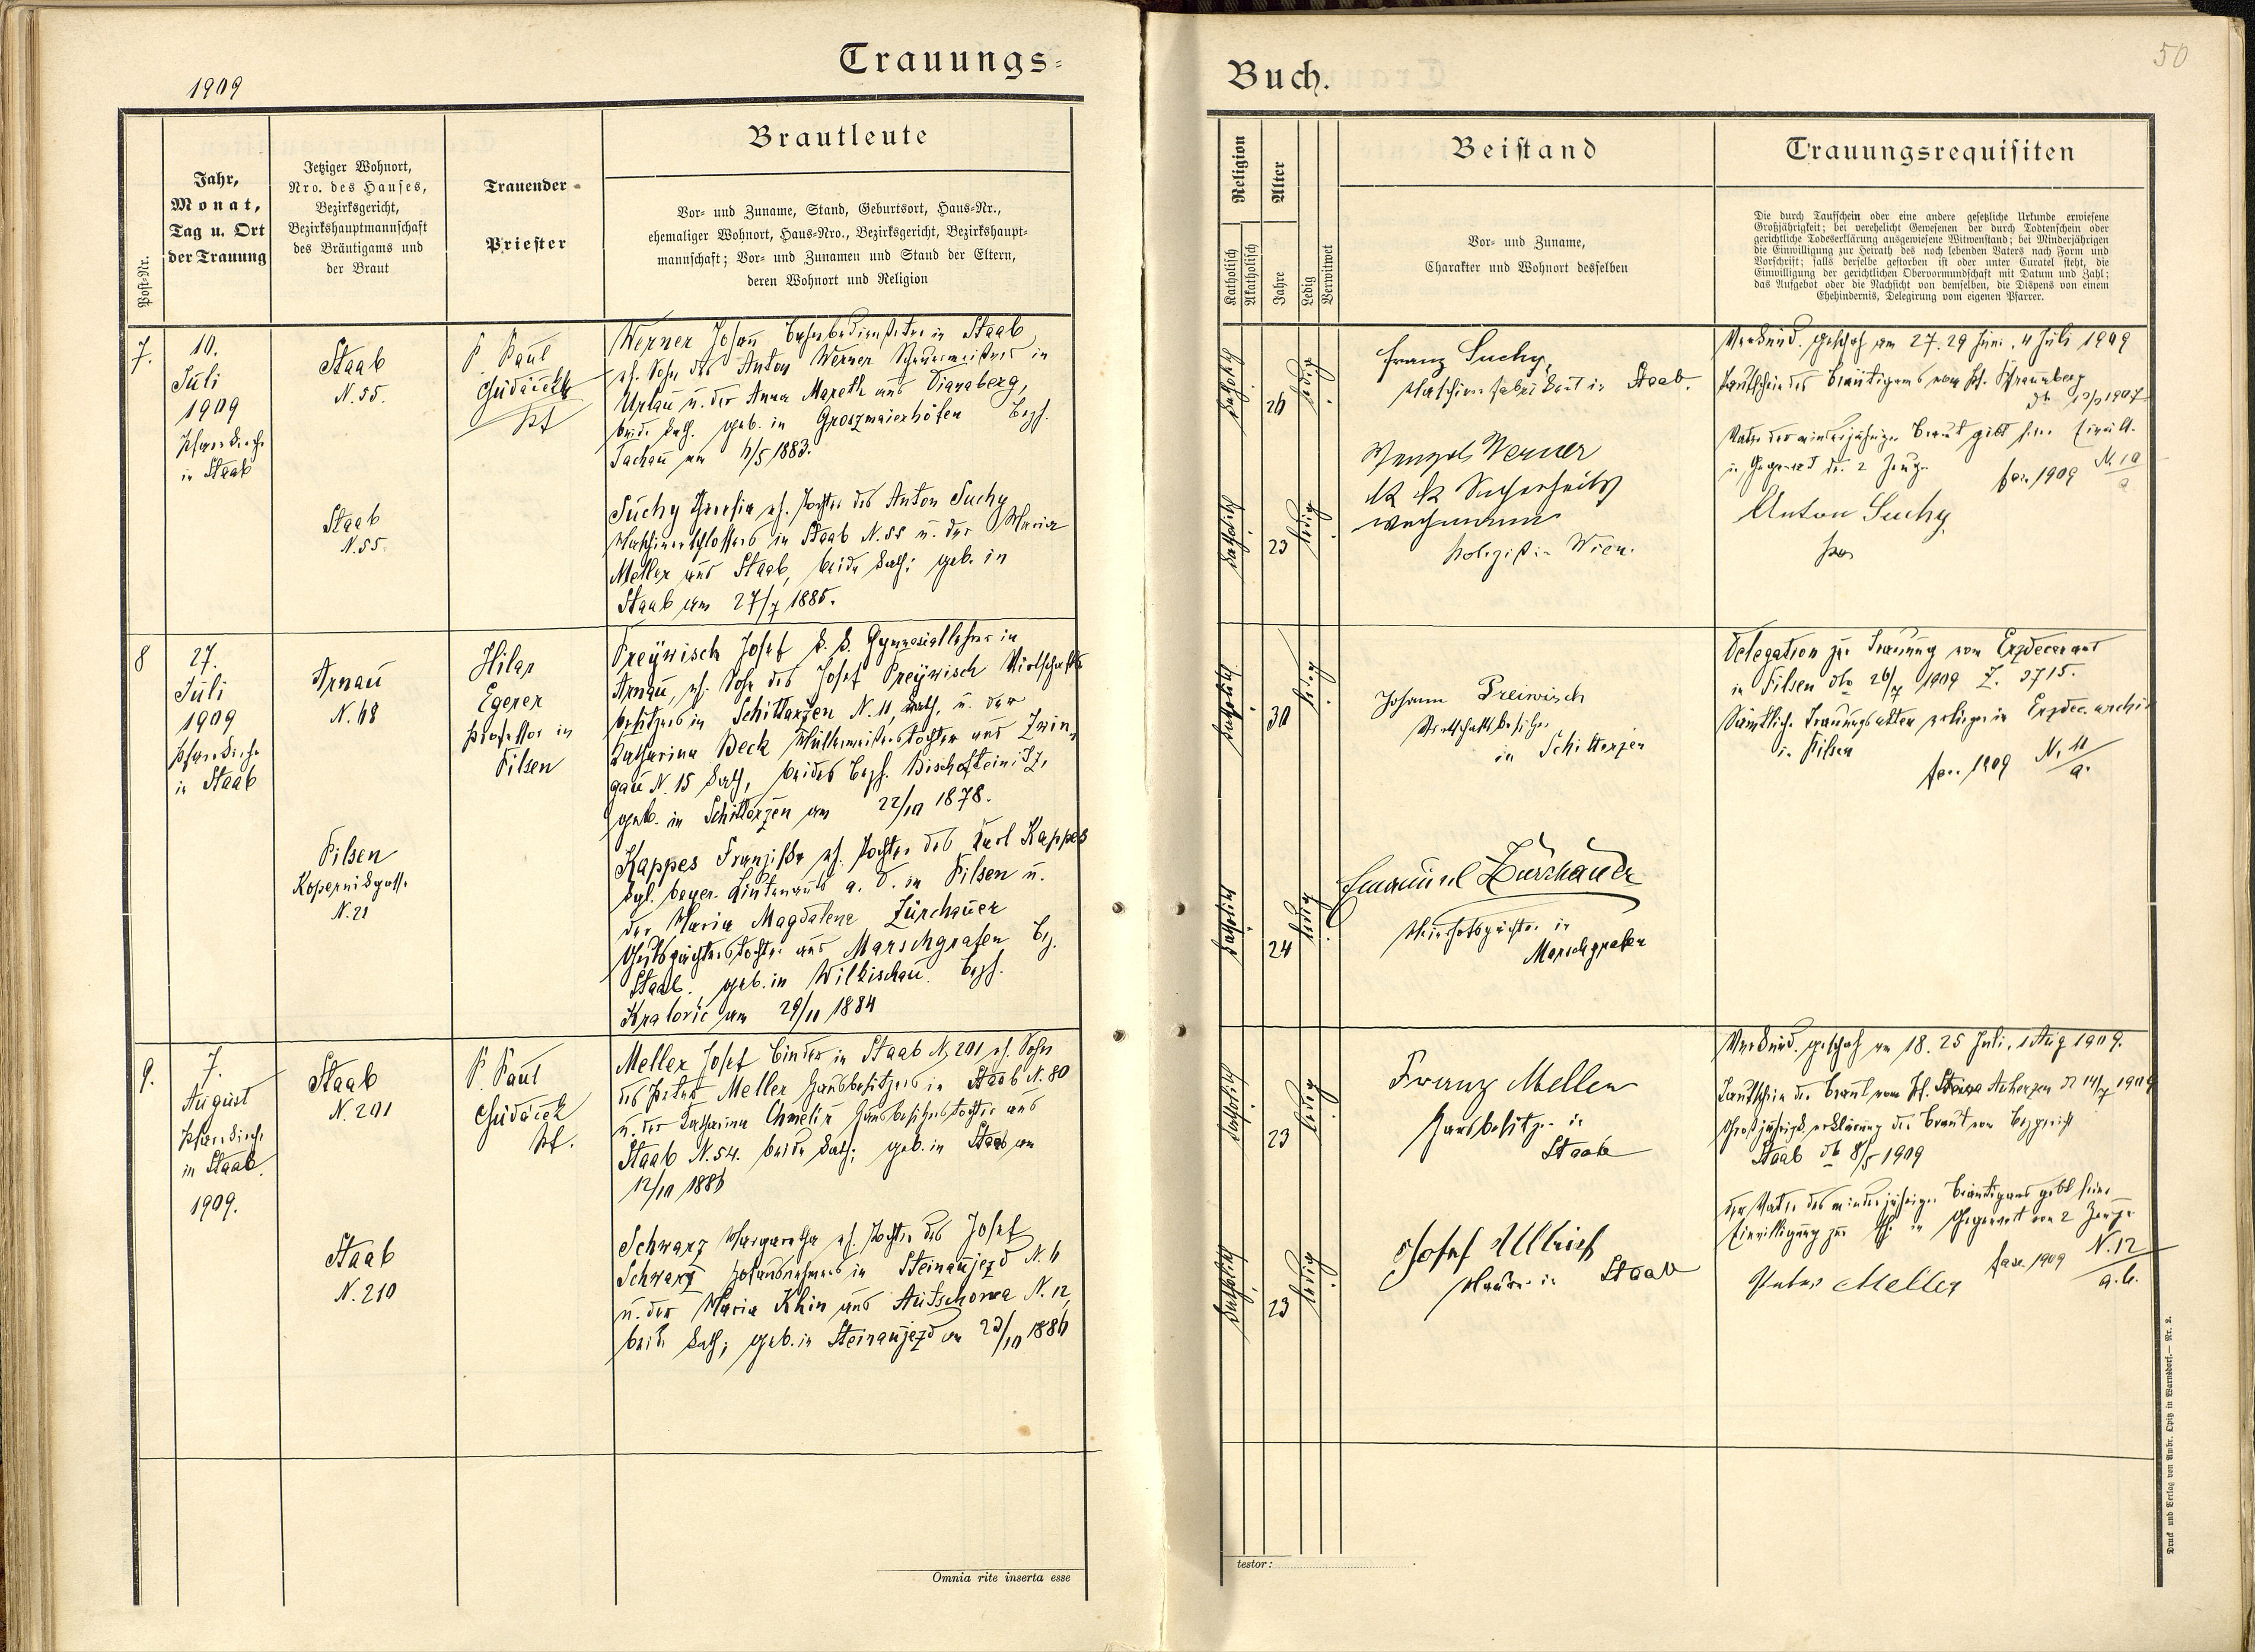 1909
Trauungs-
Buch.
50
Post-Nr.
Jahr,
Monat,
Tag u. Ort
der Trauung
Jetziger Wohnort,
Nro. des Hauses,
Bezirksgericht,
Bezirkshauptmannschaft
des Bräutigams und
der Braut
Trauender
Priester
Brautleute
Vor- und Zuname, Stand, Geburtsort, Haus-Nr.,
ehemaliger Wohnort, Haus-Nro., Bezirksgericht, Bezirkshaupt-
mannschaft; Vor- und Zunamen und Stand der Eltern,
deren Wohnort und Religion
Religion
Katholisch
Akatholisch
Alter
Jahre
Ledig
Verwitwet
Beistand
Vor- und Zuname,
Charakter und Wohnort desselben
Trauungsrequisiten
Die durch Taufschein oder eine andere gesetzliche Urkunde erwiesene
Großjährigkeit; bei verehelicht Gewesenen der durch Todtenschein oder
gerichtliche Todeserklärung ausgewiesene Witwenstand; bei Minderjährigen
die Einwilligung zur Heirath des noch lebenden Vaters nach Form und
Vorschrift; falls derselbe gestorben ist oder unter Curatel steht, die
Einwilligung der gerichtlichen Obervormundschaft mit Datum und Zahl;
das Aufgebot oder die Nachsicht von demselben, die Dispens von einem
Ehehindernis, Delegirung vom eigenen Pfarrer.
7.
10.
Juli
1909
Pfarrkirche
in Staab
Staab
N. 55.
Staab
N. 55.
P. Paul
Gudáček
Pf
Werner Johann Bahnbediensteter in Staab
eh. Sohn des Anton Werner in
Urlau u. der Anna Mareth aus Dianaberg,
beide kath. geb. in Groszmaierhöfen Bezh.
Tachau am 4/5 1883.
Suchy Theresia eh. Tochter des Anton Suchy
Maschinenschlossers in Staab N. 55 u. der Maria
Meller aus Staab, beide kath; geb. in
Staab am 27/7 1885.
katholisch
26
ledig
katholisch
23
ledig
Franz Suchy,
Maschinenfabrikant in Staab.
Wenzel Werner
k k Sicherheits
wachmann
Polizist in Wien.
Verkünd. geschah am 27. 29 Juni, 4 Juli 1909
Taufschein des Bräutigams vom Pf.
13/2 1907
Vater der minderjährigen Braut gibt seine Einwill.
in Gegenwart der 2 Zeugen
fasc. 1909 N. 10/a
Anton Suchy
8
27.
Juli
1909
Pfarrkirche
in Staab
Arnau
N. 48
Pilsen
Kopernikgasse
N. 21
Hilar
Egerer
Professor in
Pilsen
Preÿwisch Josef k. k. Gymnasiallehrer in
Arnau, eh. Sohn des Josef Preÿwisch Wirtschafts
besitzers in Schittarzen N. 11, kath, u. der
Katharina Beck Müllermeisterstochter aus Zwin,
gau N. 15 kath, beides Bezh. Bischofteinitz,
geb. in Schittarzen am 22/10 1878.
Kappes Franziska eh. Tochter des Karl Kappes
kgl. bayer. Lieutenants a. D. in Pilsen u.
der Maria Magdalena Zürchauer
Gutspächterstochter aus Marschgrafen Bz.
Staab. geb. in Wilkischau. Bezh.
Kralovic am 29/11 1884
katholisch
30
ledig
katholisch
24
ledig
Johann Preiwisch
Wirtschaftsbesitzer
in Schittarzen
Emanuel Zürchauer
Meierhofspächter in
Marschgrafen
Delegation zur Trauung vom Erzdecanat
in Pilsen dto 26/7 1909 Z. 3715.
Sämtliche Trauungsakten erliegen in Erzdec. archiv
in Pilsen
fasc. 1909 N. 11/a.
9.
7.
August
Pfarrkirche
in Staab.
1909.
Staab
N. 201
Staab
N. 210
P. Paul
Gudáček
Pf.
Meller Josef Binder in Staab N. 201 eh. Sohn
des Peter Meller Hausbesitzers in Staab N. 80
u. der Katharina Chmelir Hausbesitzerstochter aus
Staab N. 54. beide kath; geb. in Staab am
12/10 1886
Schwarz Margaretha eh. Tochter des Josef
Schwarz in Steinaujezd N. 4
u. der Maria Khin aus Autschowa N. 12,
beide kath; geb. in Steinaujezd am 23/10 1886
katholisch
23
ledig
katholisch
23
ledig
Franz Meller
Hausbesitzer in
Staab
Josef Ullrich
Maurer in Staab
Verkünd. geschah am 18. 25 Juli, 1 Aug 1909.
Taufschein der Braut vom Pf. Auherzen 14/7 1909
Großjährigk. erklärung der Braut vom Bezgericht
Staab 8/5 1909
Der Vater des minderjährigen Bräutigams gibt seine
Einwilligung zur Ehe in Gegenwart von 2 Zeugen
Peter Meller
fasc. 1909 N. 12/a. b.
Omnia rite inserta esse
testor:
Druck und Verlag von Ambr. Opitz in Warnsdorf. — Nr. 2.